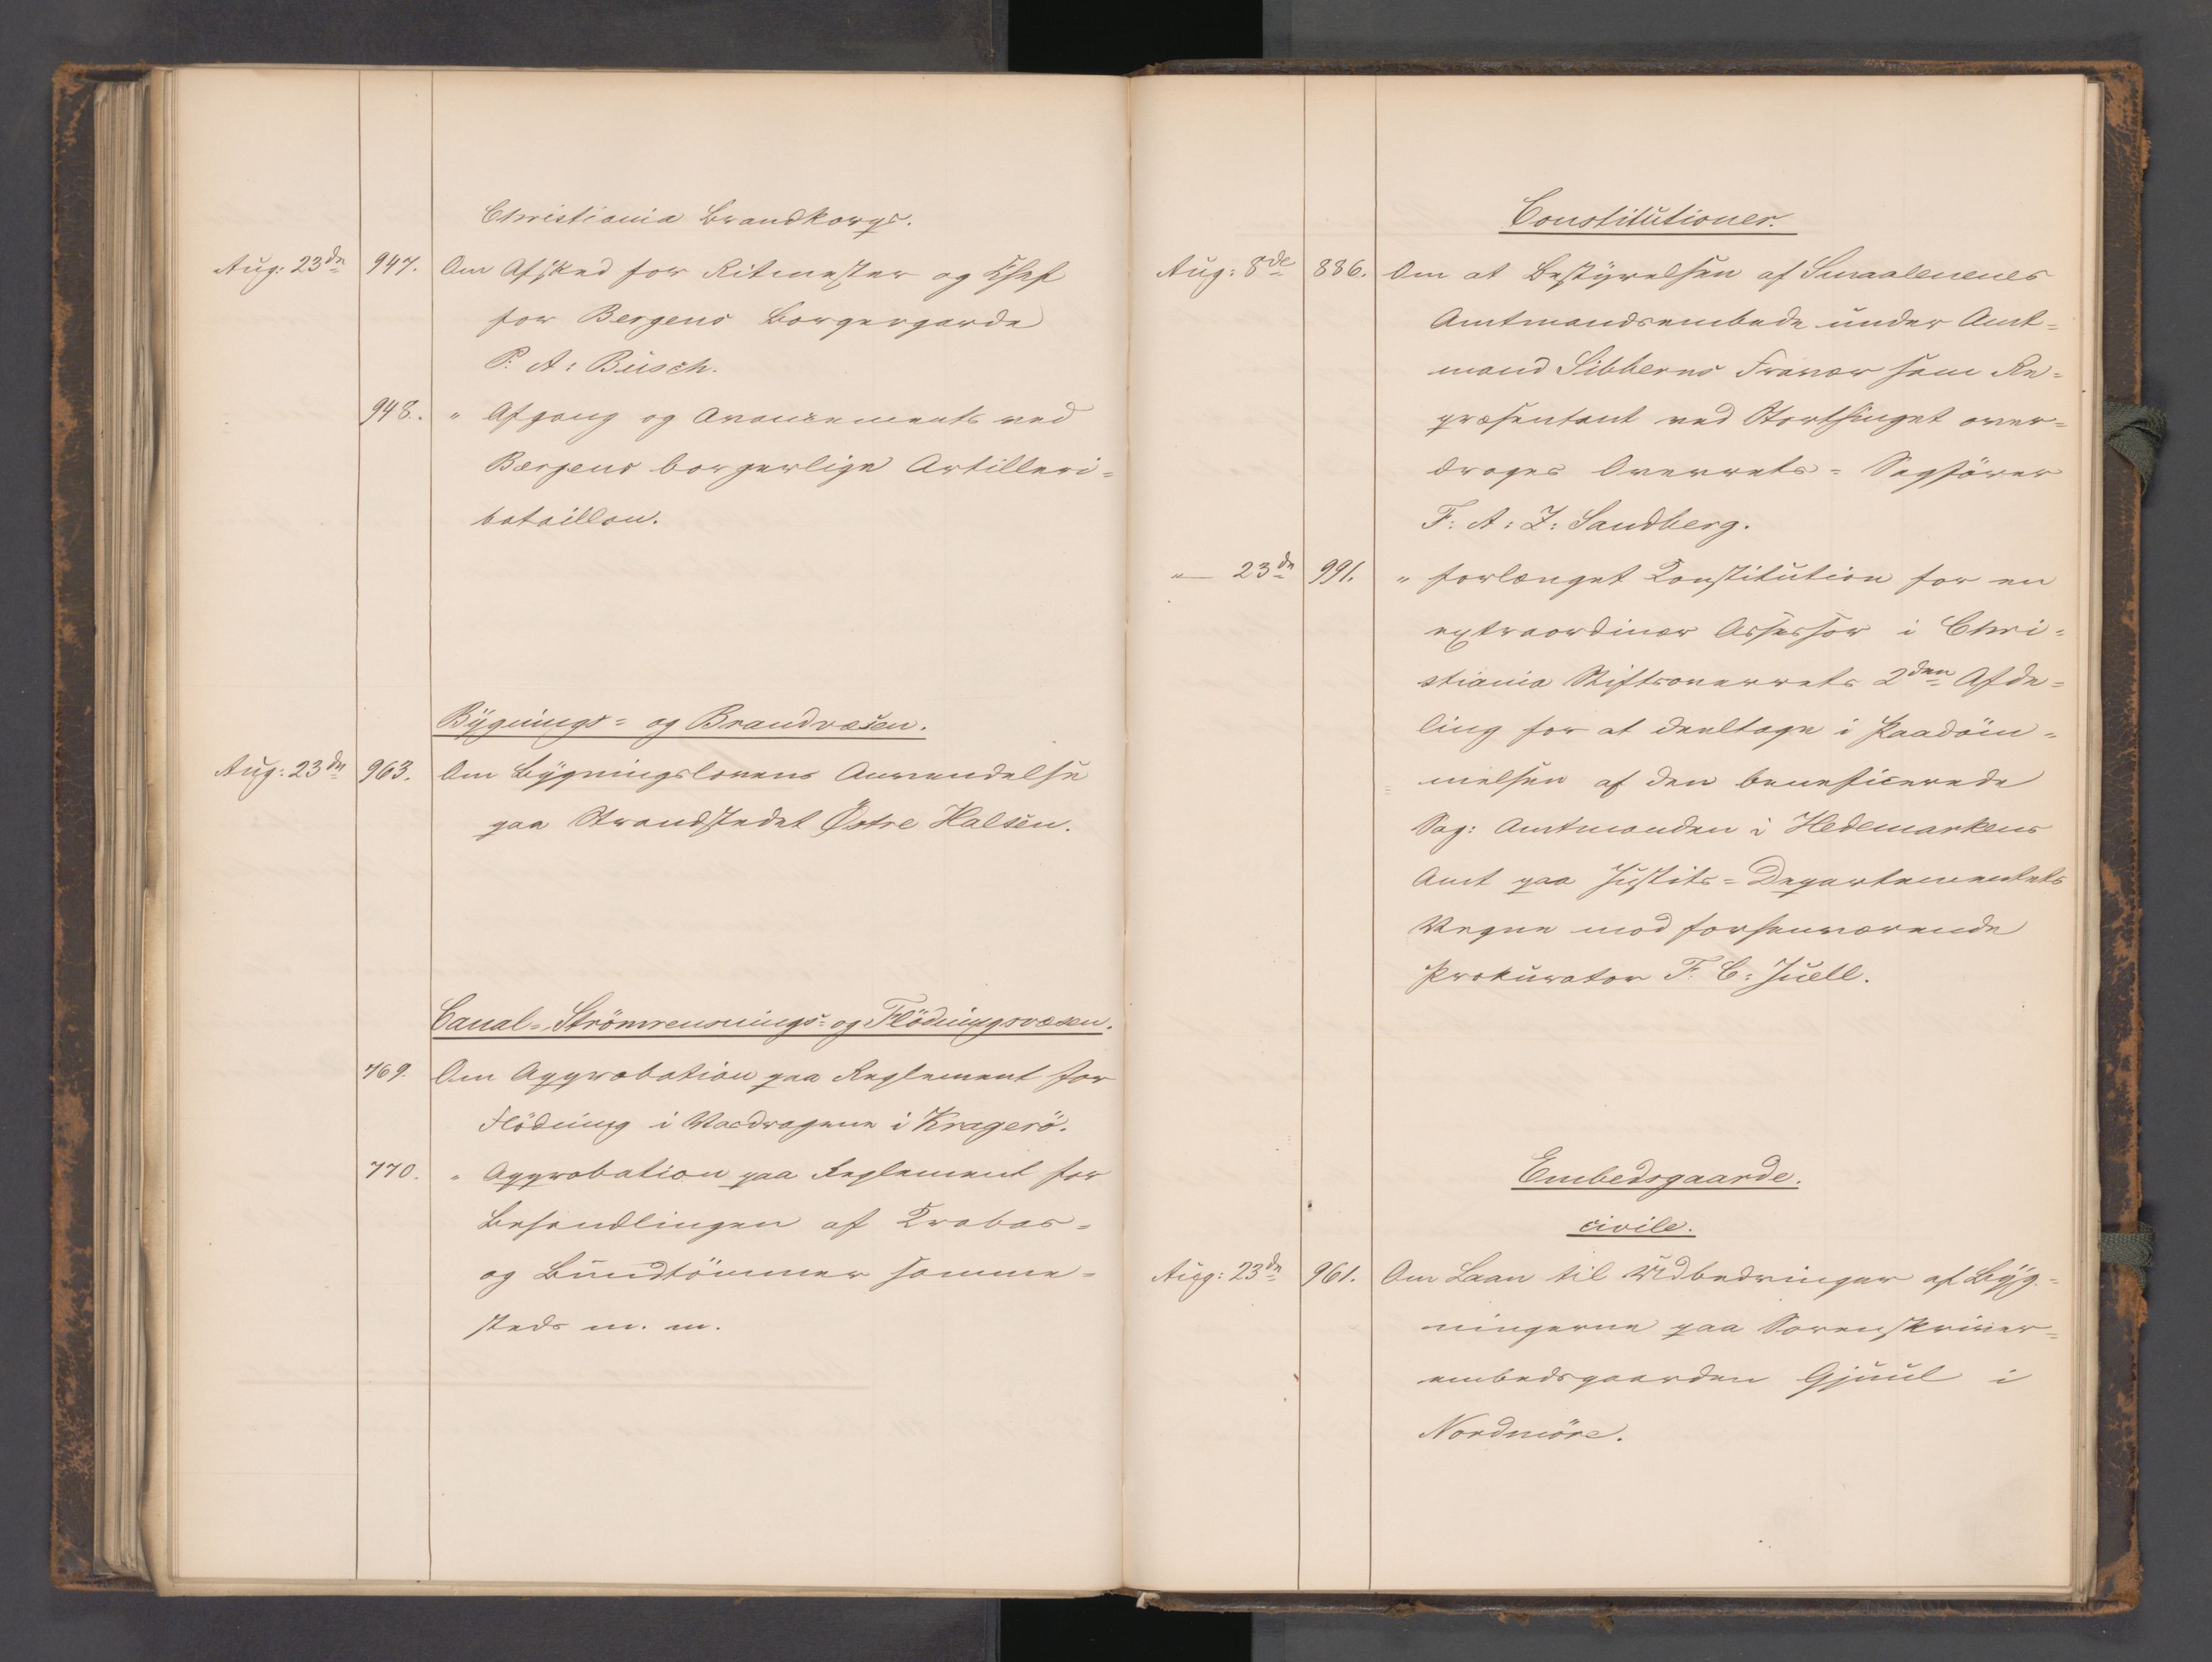 Christiania Brandkorps.
Aug: 23de 947. Om Afsked for Ritmester og Chef
for Bergens Borgergarde
P: A: Büsch.
948. " Afgang og Avancements ved
Bergens borgerlige Artilleri-
bataillon.
Bygnings- og Brandvæsen.
Aug: 23de 963. Om Bygningslovens Anvendelse
paa Strandstedet Østre Halsen.
Canal-, Strömrensnings- og Flödningsvæsen.
769. Om Approbation paa Reglement for
Flödning i Vasdragene i Kragerö.
770. " Approbation paa Reglement for
Behandlingen af Trabas-
og Bundtömmer somme-
steds m. m.
Constitutioner.
Aug: 8de 886. Om at Bestyrelsen af Smaalenenes
Amtmandsembede under Amt-
mand Sibberns Fravær som Re-
præsentant ved Storthinget over-
drages Overrets-Sagförer
F: A: Z: Sandberg.
"— 23de 991. " forlænget Konstitution for en
extraordinær Assessor i Chri-
stiania Stiftsoverrets 2den Afde-
ling for at deeltage i Paadöm-
melsen af den beneficerede
Sag: Amtmanden i Hedemarkens
Amt paa Justits-Departementets
Vegne mod forhenværende
Prokurator F: C: Juell.
Embedsgaarde.
civile.
Aug: 23de 961. Om Laan til Udbedringer af Byg-
ningerne paa Sorenskriver-
embedsgaarden Gjüül i
Nordmöre.